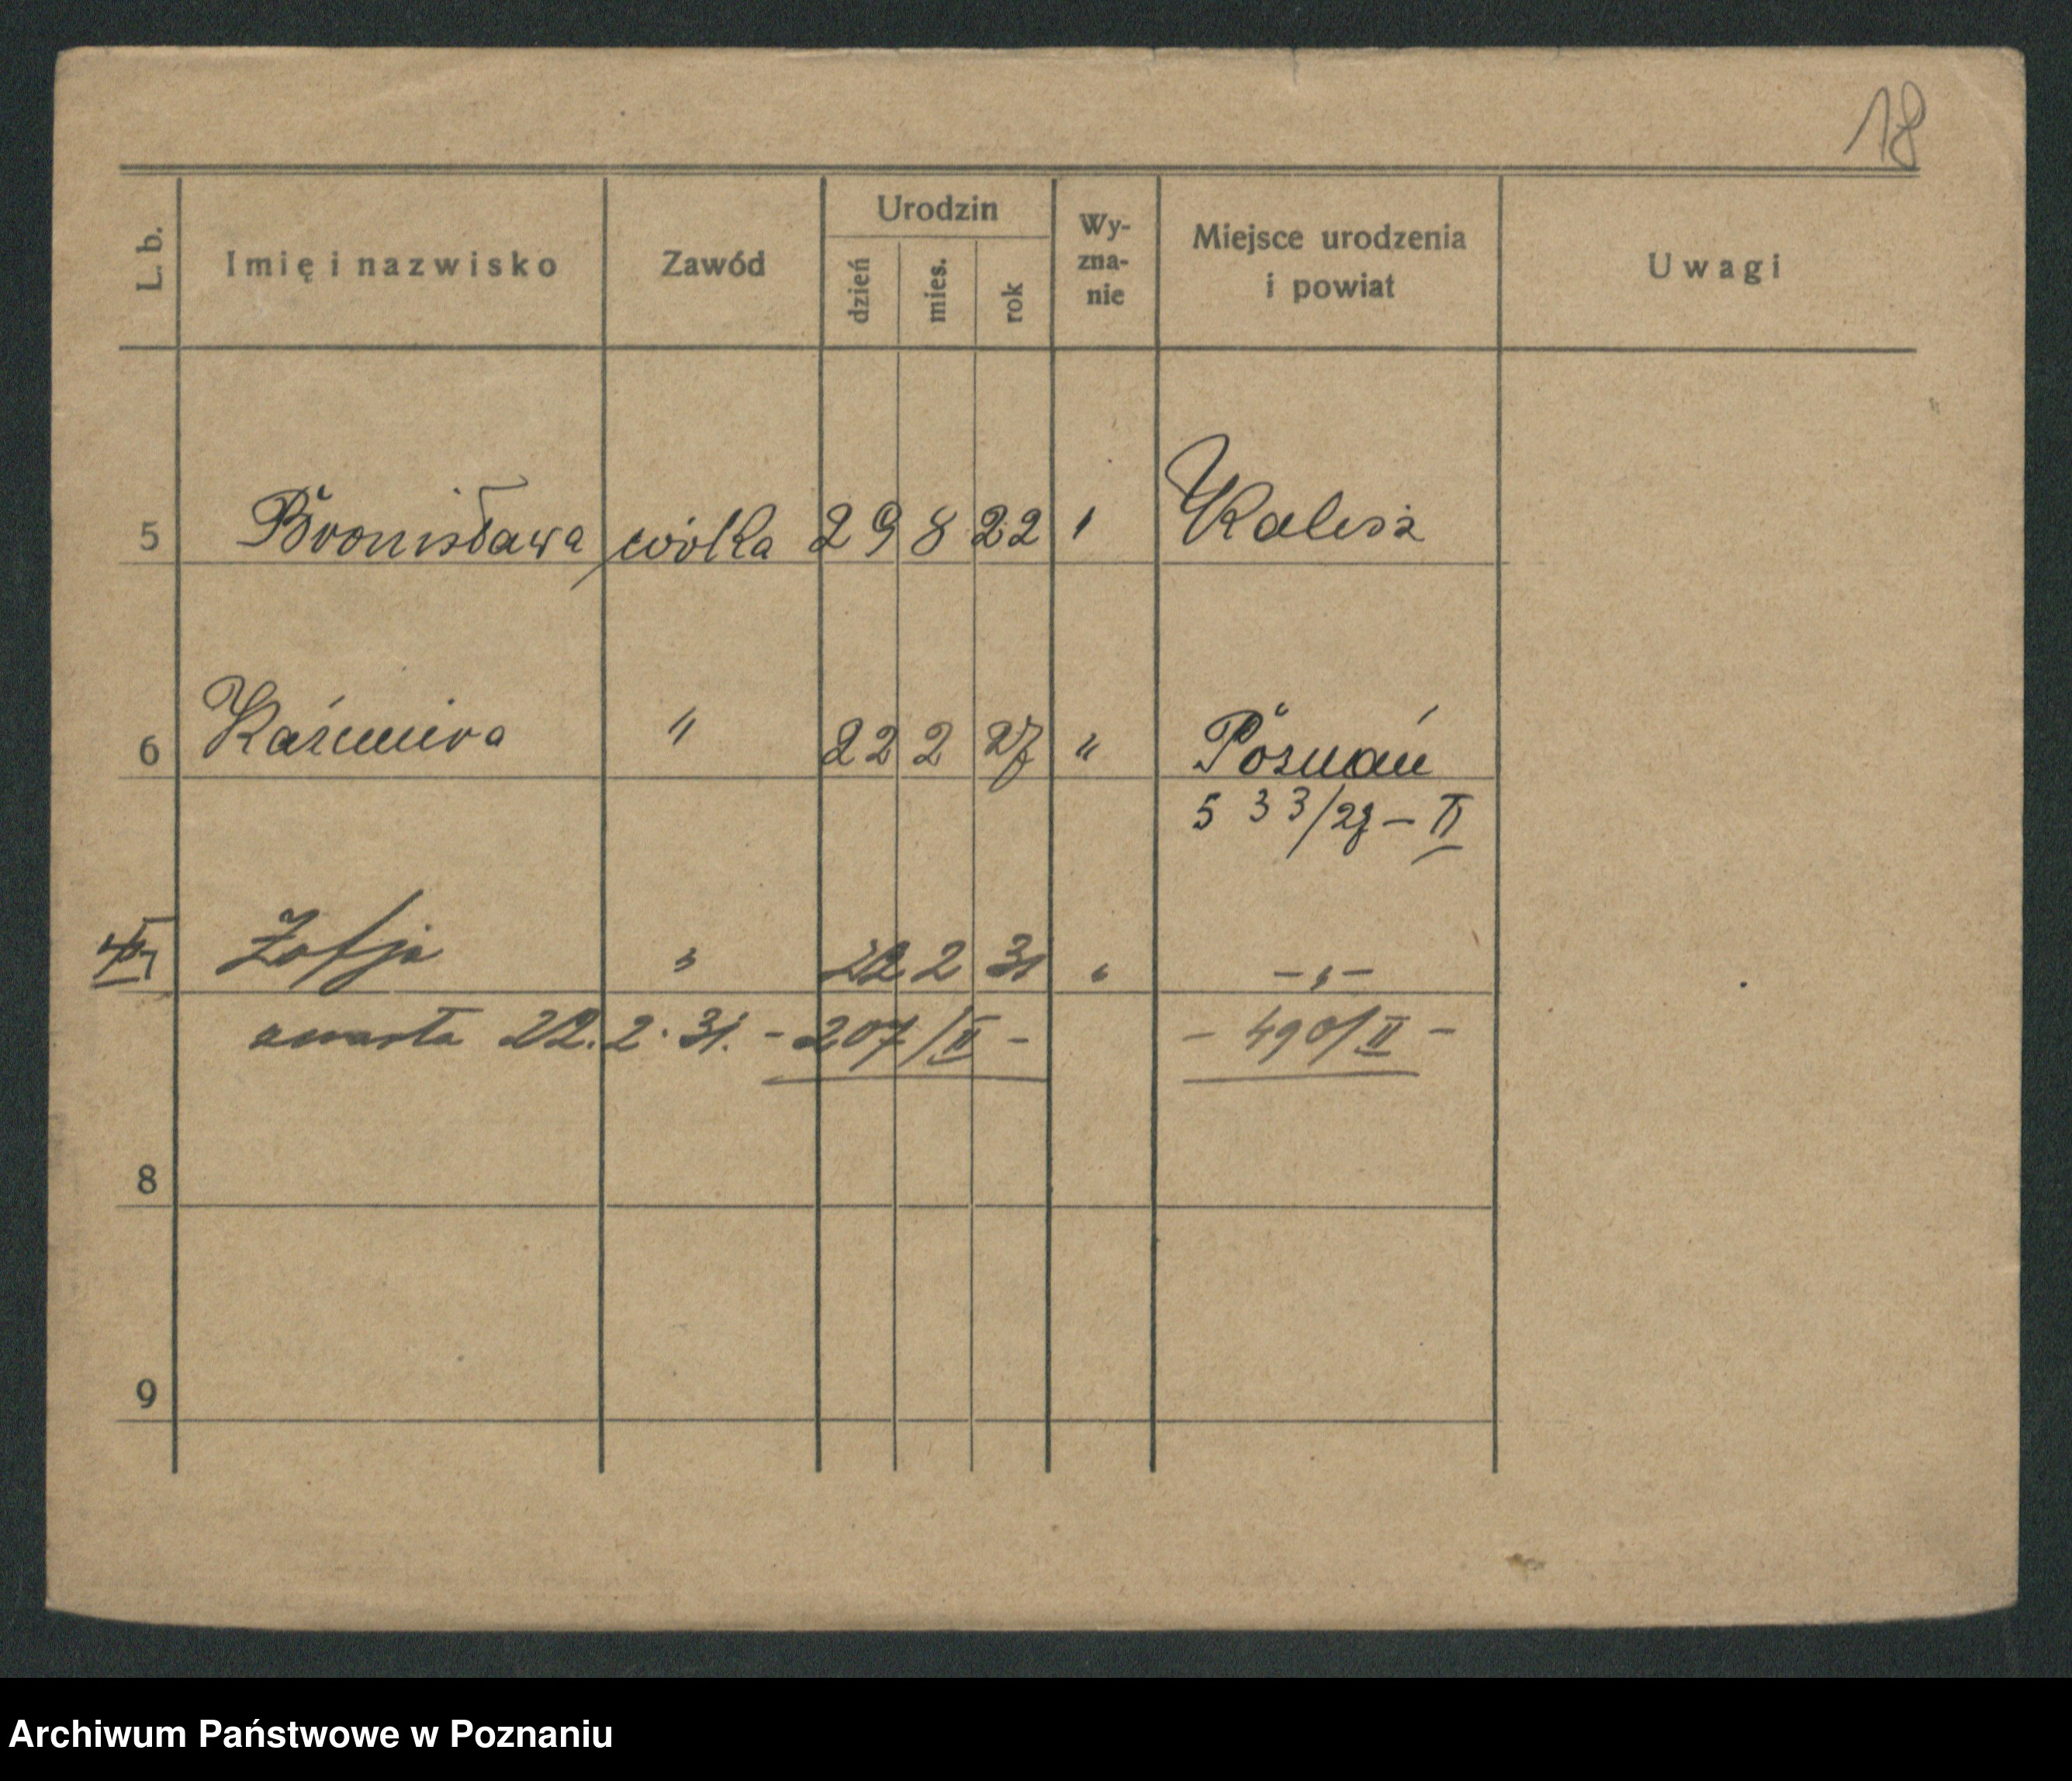 18
L. b. Imię i nazwisko Zawód Urodzin dzień mies. rok Wy-zna-nie Miejsce urodzenia i powiat Uwagi
5 Bronisława córka 29 8 22 " Kalisz
6 Kazimiera " 22 2 27 " Poznań
533/27 - II
Zofja " 22 2 31 " - " -
zmarła 22. 2. 31. - 207/II - - 490/II -
8
9
Archiwum Państwowe w Poznaniu